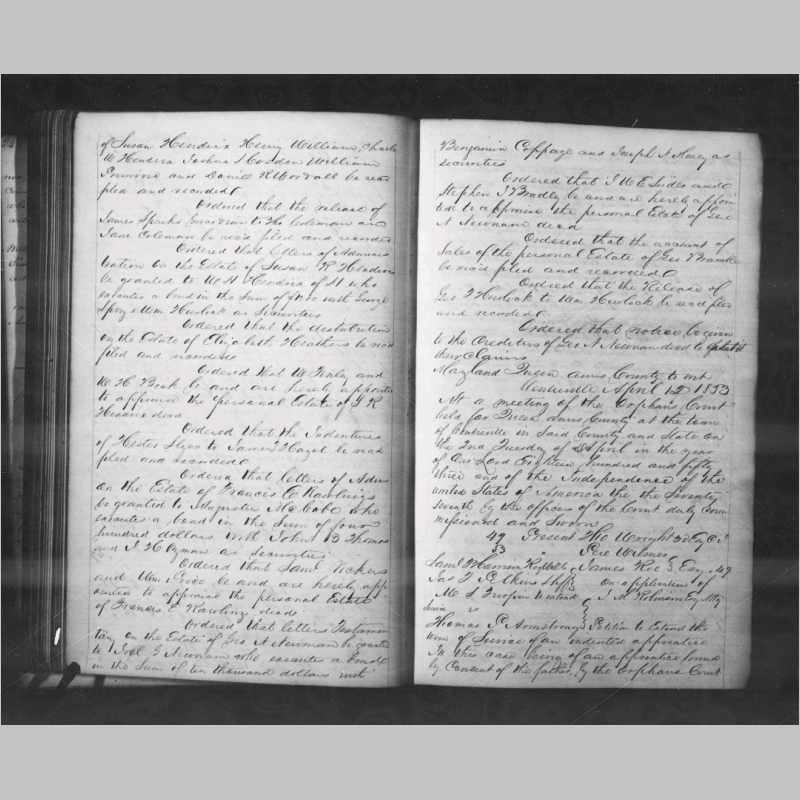 of Susan Hendrix Henry William, Charles
W Hendrix Joshua S Cosden William
and Daniel R Woodall be rea
filed and recorded
Ordered that the release of
James Sparks Guardian to Coleman and
Jane Coleman be rea'd filed and recorded
Ordered that letters of Adminis
tration on the Estate of Susan R Hendrix
be granted to W H Hendrix of H who
executes a bond in the sum of with George
Spry & Wm Hurlock as Securities
Ordered that the distribution
on the Estate of Elizabeth Heathers be read
filed and recorded
Ordered that W and
W H Beck be and are hereby appointed
to appraise the personal Estate of S R
decd
Ordered that the Indentures
of Hester to James Hazel be read
filed and recorded
Ordered that letters of Adm
on the Estate of Frances E Rawlings
be granted to Augustus McCabe who
executes a bond in the sum of four
hundred dollars with John B Thomas
and J H as securities
Ordered that Saml Vickers
and Wm Price be and are hereby app
ointed to appraise the personal Estate
of Frances E Rawlings decd
Ordered that letters Testamen
tary on the Estate of Geo A Newnam be granted
to Joel G Newnam who executes a bond
in the sum of ten thousand dollars with
Benjamin Coppage and Joseph A as
securities
Ordered that J W E Sudler and
Stephen J Bradley be and are hereby appoin
ted to appraise the personal Estate of Geo
A Newnam decd
Ordered that the account of
Sales of the personal Estate of Geo
be rea'd filed and recorded
Ordered that the Release of
Geo T Hurlock to Wm Hurlock be read filed
and recorded
Ordered that notice be given
to the Creditors of Geo A Newnam decd to exhibit
their Claims
Maryland Queen anns County to wit
Centreville April 12 1853
At a meeting of the Orphans Court
held for Queen Anns County at the town
of Centreville in Said County and State on
the 2nd Tuesday of April in the year
of Our Lord Eighteen hundred and fifty
three and of the Independence of the
United States of America the the Seventy
seventh by the officers of the Court duly com
missioned and Sworn
49 Present Tho Wright 3d Esq C.J.
53 Pere Wilmer
Saml Thomas James Roe } Esq
Jas on application of
J M Robinson Esq
vs
Thomas P Armstrong } Petition to Extend the
term of Service of an indented apprentice
In this case being of an apprentice bound
by Consent of the father, by the Orphans Court